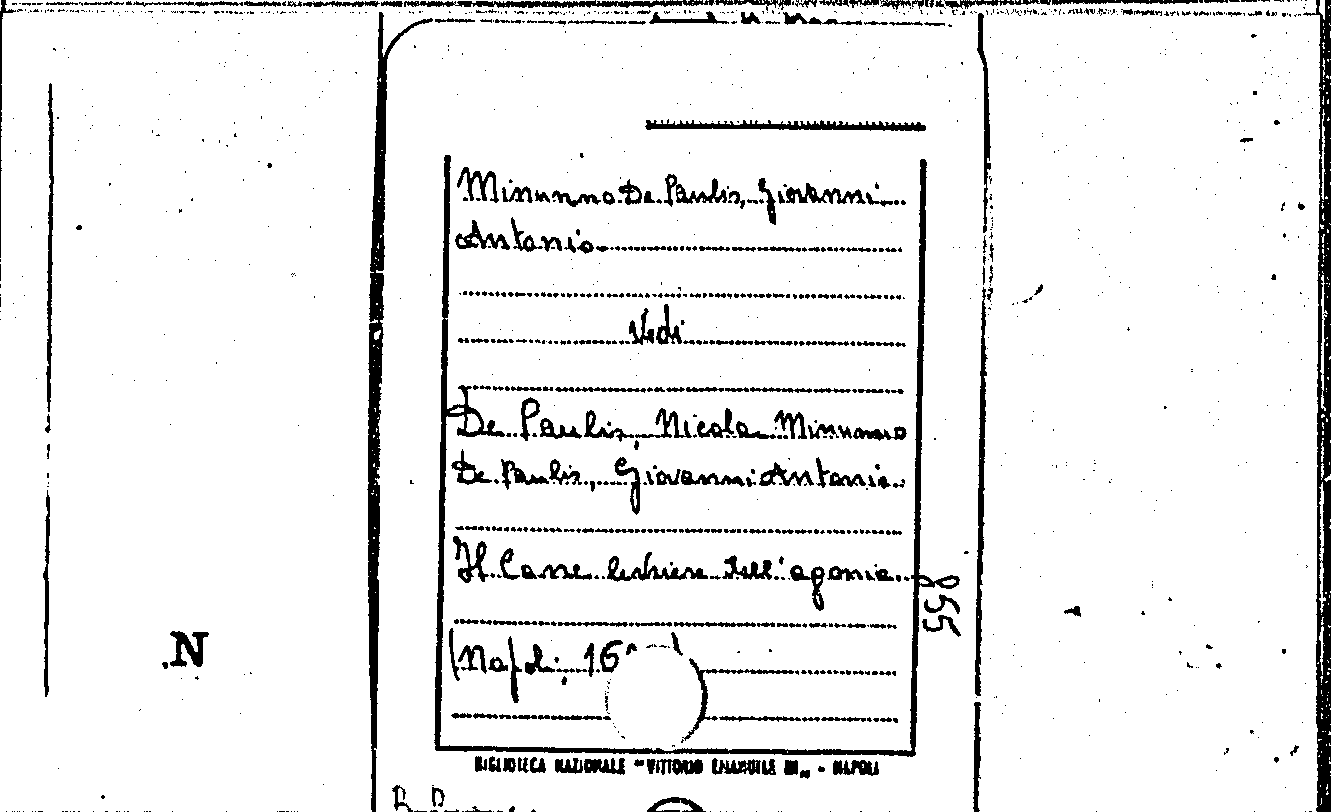 Minunno De Paulis, Giovanni
Antonio.
Vedi
De Paulis, Nicola Minunno
De Paulis, Giovanni Antonio.
Il dell'agonia.
(Napoli, 16 )
855
N.
BIBLIOTECA NAZIONALE "VITTORIO EMANUELE III„ - NAPOLI